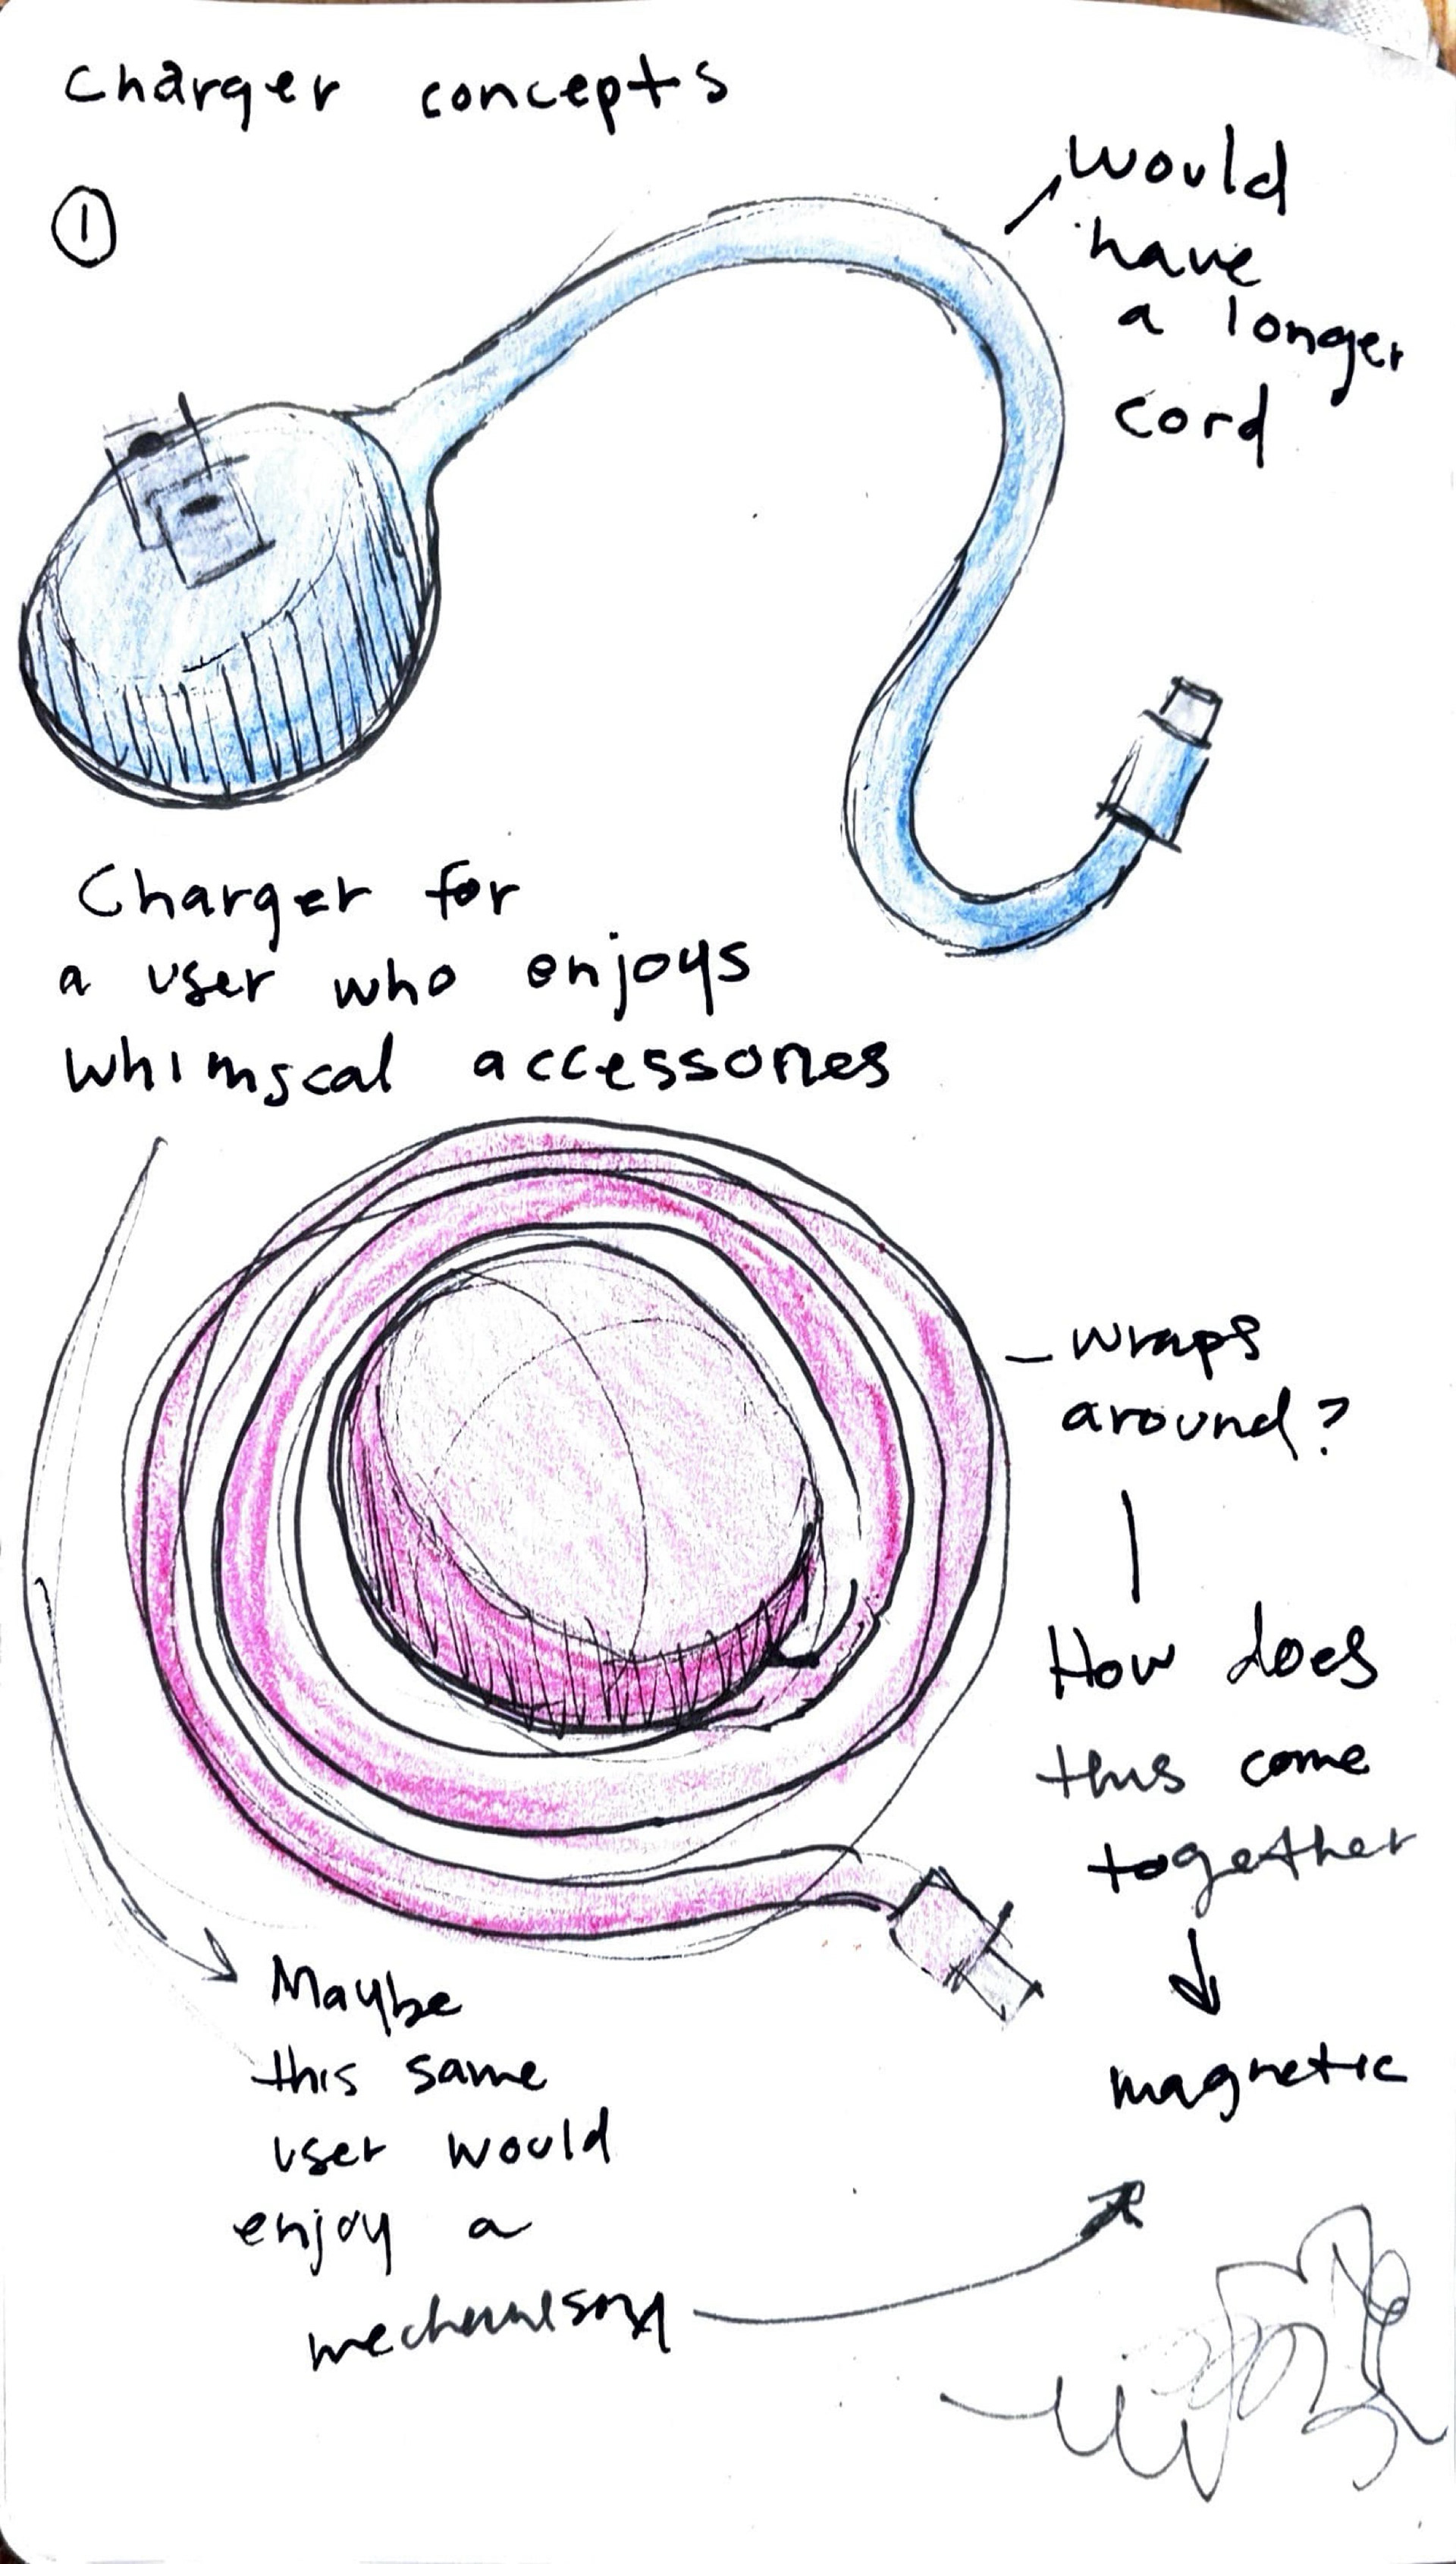 Charger concepts
1
would
have
a longer
cord
Charger for
a user who enjoys
whimscal accessories
wraps
around?
How does
this come
together
magnetic
Maybe
this same
user would
enjoy a
mechanism